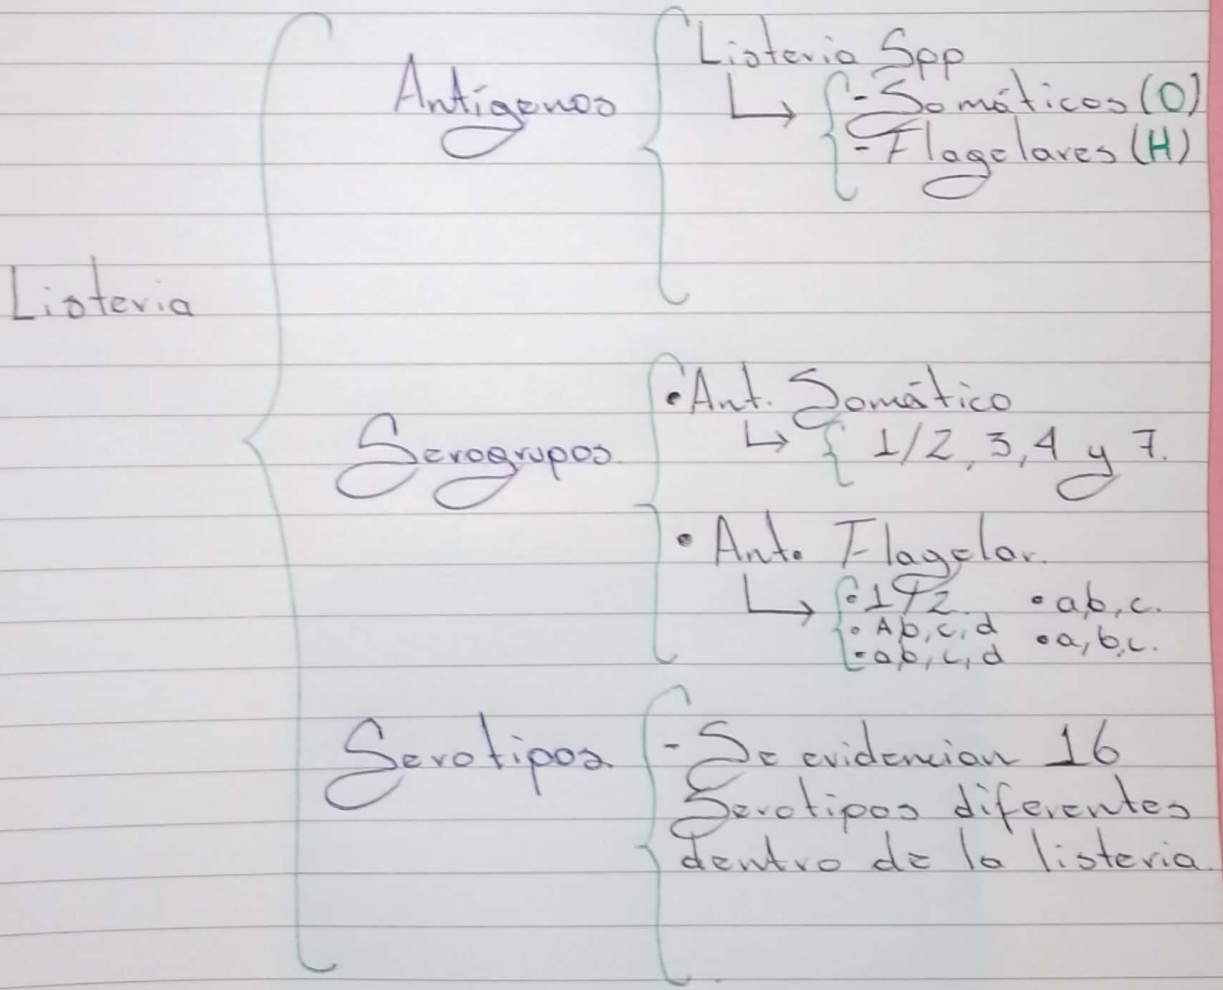 Listeria
Antígenos
Listeria Spp
- Somáticos (O)
- Flagelares (H)
Serogrupos.
• Ant. Somático
1/2, 3, 4 y 7.
• Ant. Flagelar.
• ab, c.
• Ab, c, d
• a, b, c.
- ab, c, d
Serotipos
- Se evidencian 16
Serotipos diferentes
dentro de la listeria.